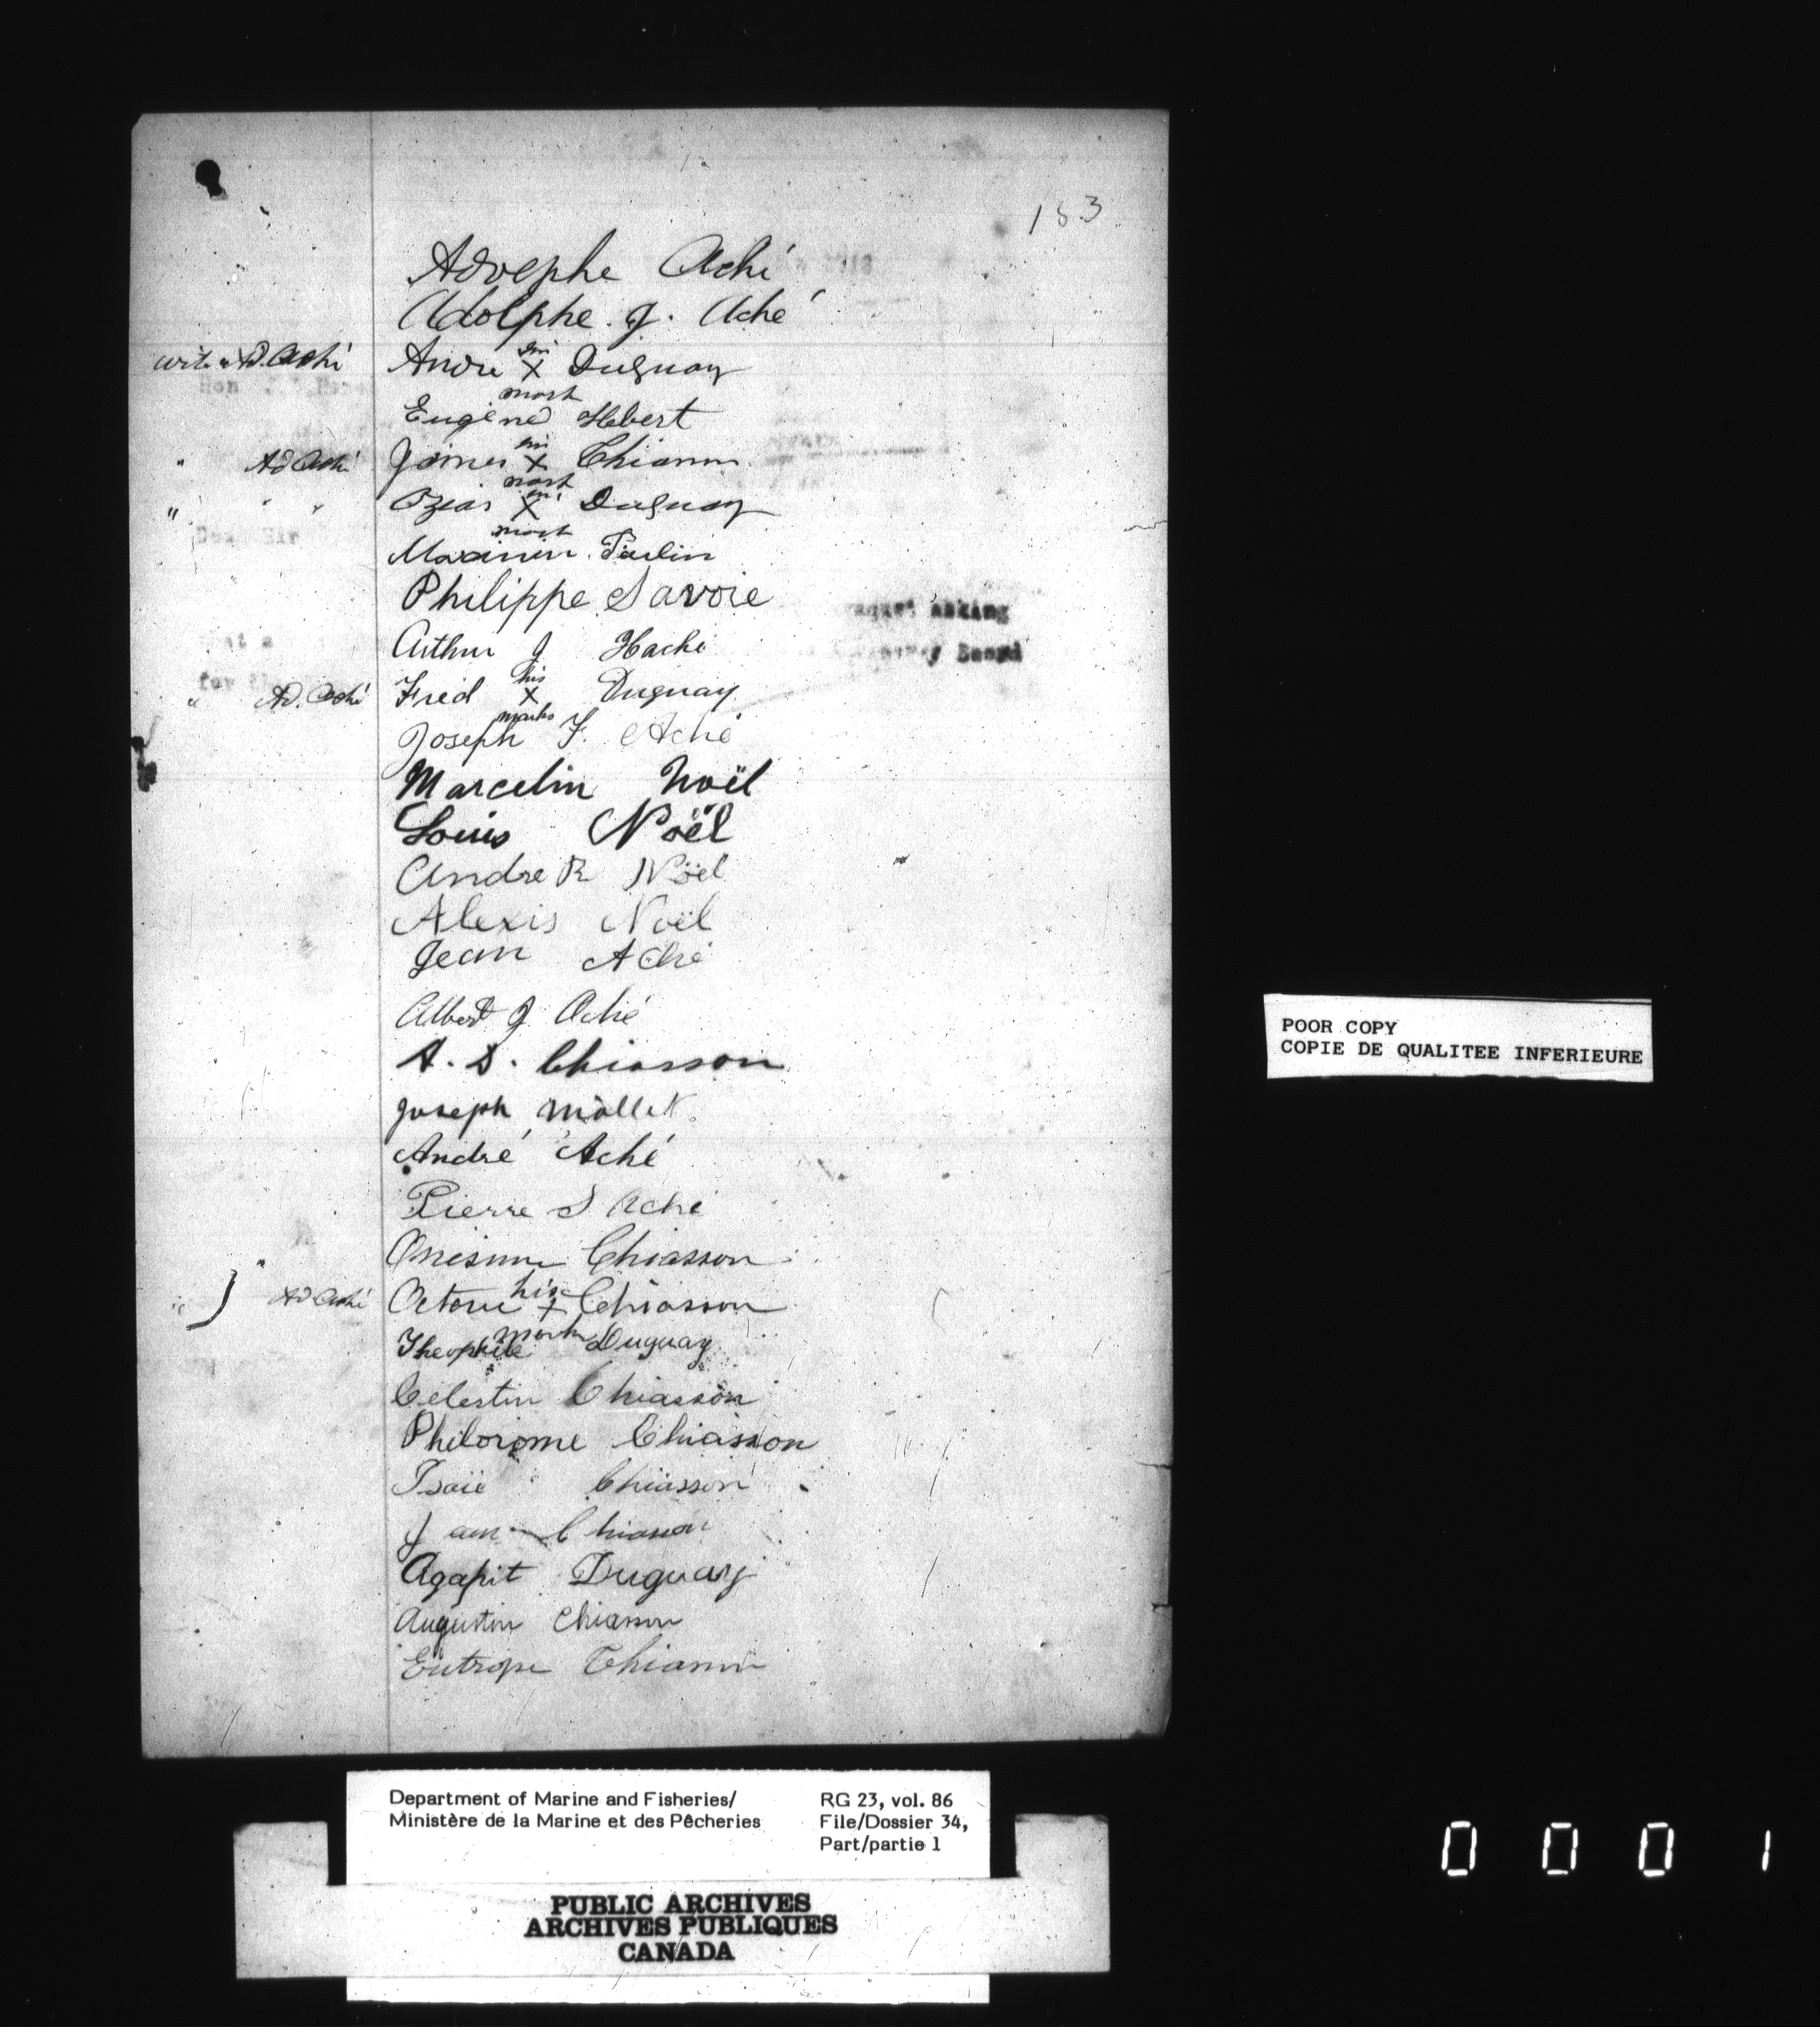 153
Adolphe Aché
Adolphe. J. Aché
wit. Ad. Aché Andre his X Duguay
mark
Eugène Hebert
" Ad Aché James his X Chiasson
mark
" " " Ozias his X Duguay
mark
Maximin Paulin
Philippe Savoie
Arthur J Haché
" Ad. Aché Fred his X Duguay
marks
Joseph F. Aché
Marcelin Noël
Louis Noël
Andre R Nöel
Alexis Noël
Jean Aché
Albert J Aché
A. D. Chiasson
Joseph Mallet
André Aché
Pierre S Aché
Onésime Chiasson
" Ad Aché Octave his + Chiasson
mark
Theophile Duguay
Célestin Chiasson
Philorome Chiasson
Isaïe Chiasson
Chiasson
Agapit Duguay
Augustin Chiasson
Eutrope Chiasson
asking
Board
Hon
Dear Sir
POOR COPY
COPIE DE QUALITEE INFERIEURE
Department of Marine and Fisheries/
Ministère de la Marine et des Pêcheries
RG 23, vol. 86
File/Dossier 34,
Part/partie 1
PUBLIC ARCHIVES
ARCHIVES PUBLIQUES
CANADA
0001